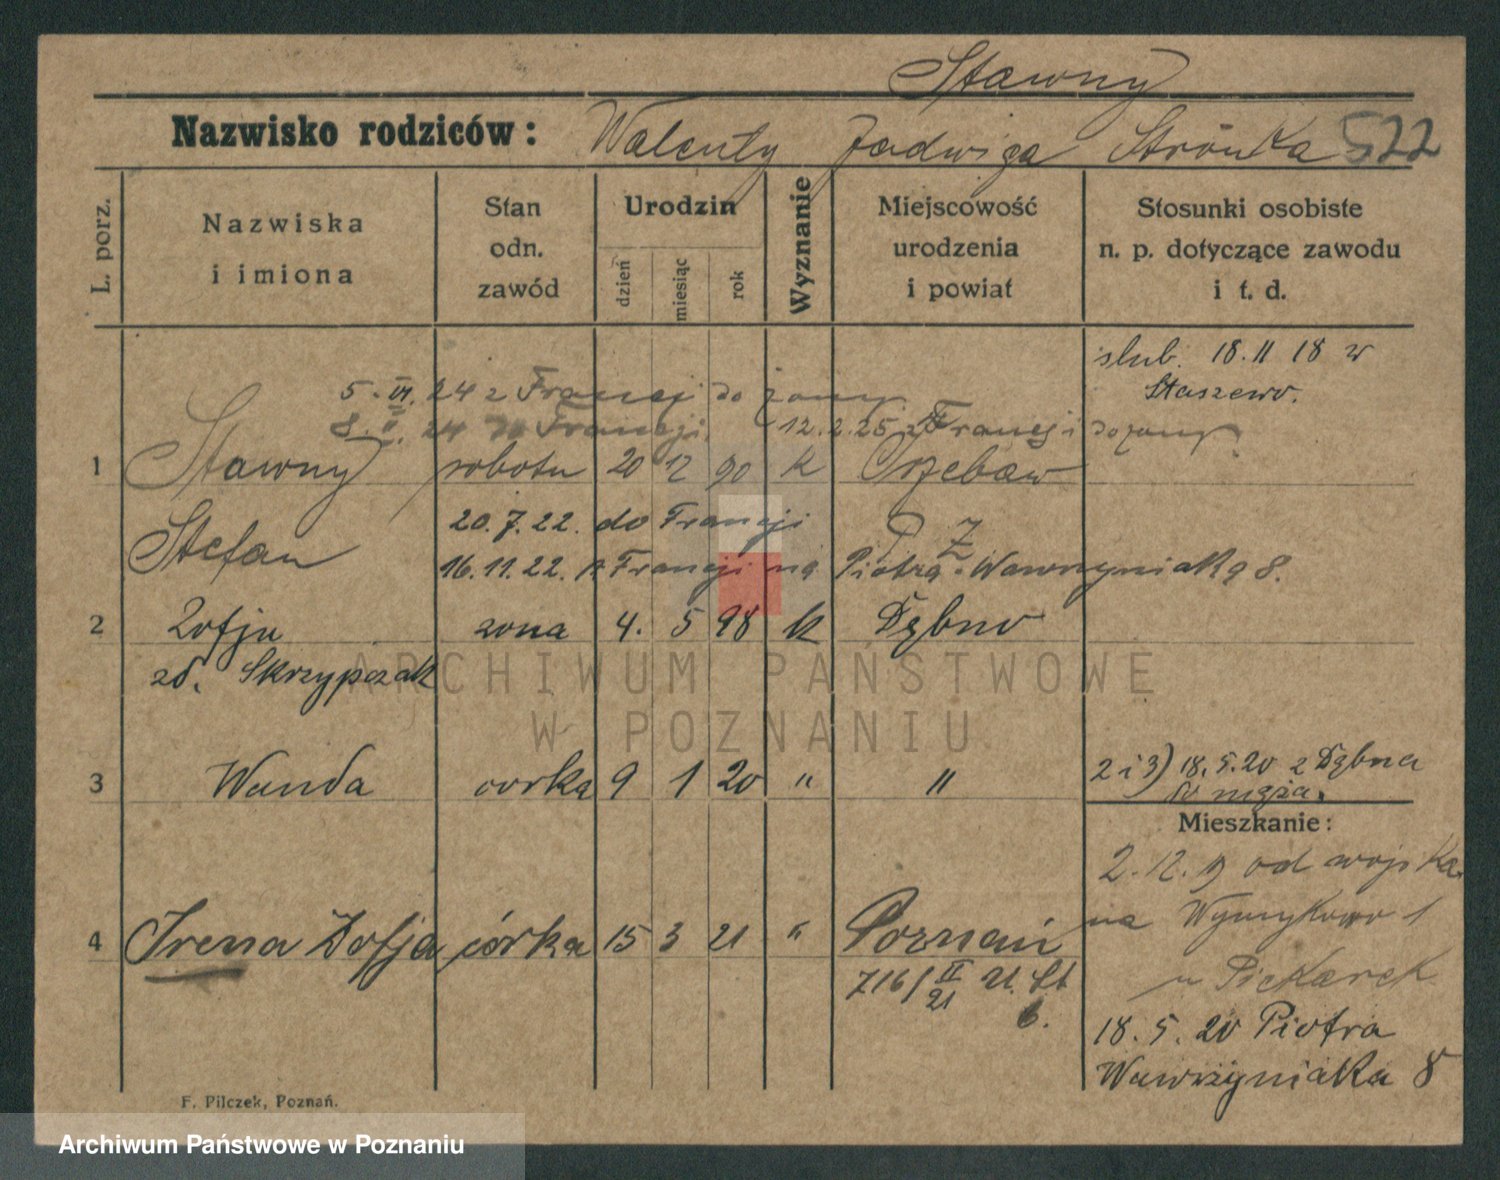 Stawny
Nazwisko rodziców: Walenty Jadwiga Strónka 522
L. porz.
Nazwiska i imiona
Stan odn. zawód
Urodzin
dzień
miesiąc
rok
Wyznanie
Miejscowość urodzenia i powiat
Stosunki osobiste n. p. dotyczące zawodu i t. d.
slub. 18.11 18 w
Staszewo.
5. VI. 24 z Francji do żony
8. V. 24 Francji 12.2.25 z Francji do żony
1 Stawny robotn 20 12 90 k
Stefan 20.7.22. do Francji
16.11.22. z Francji na Piotra-Wawrzyniaka 8.
2 Zofja zona 4. 5 98 k Dębno
zd. Skrzypczak
3 Wanda corka 9 1 20 " "
2 i 3) 18.5.20 z Dębna
do męża.
Mieszkanie:
2.12.19 od wojska
4 Irena Zofja córka 15 3 21 " Poznań
716/II 21 U. St
6.
na 1
u Piekarek
18.5.20 Piotra
Wawrzyniaka 8
F. Pilczek, Poznań.
ARCHIWUM PAŃSTWOWE
W POZNANIU
Archiwum Państwowe w Poznaniu